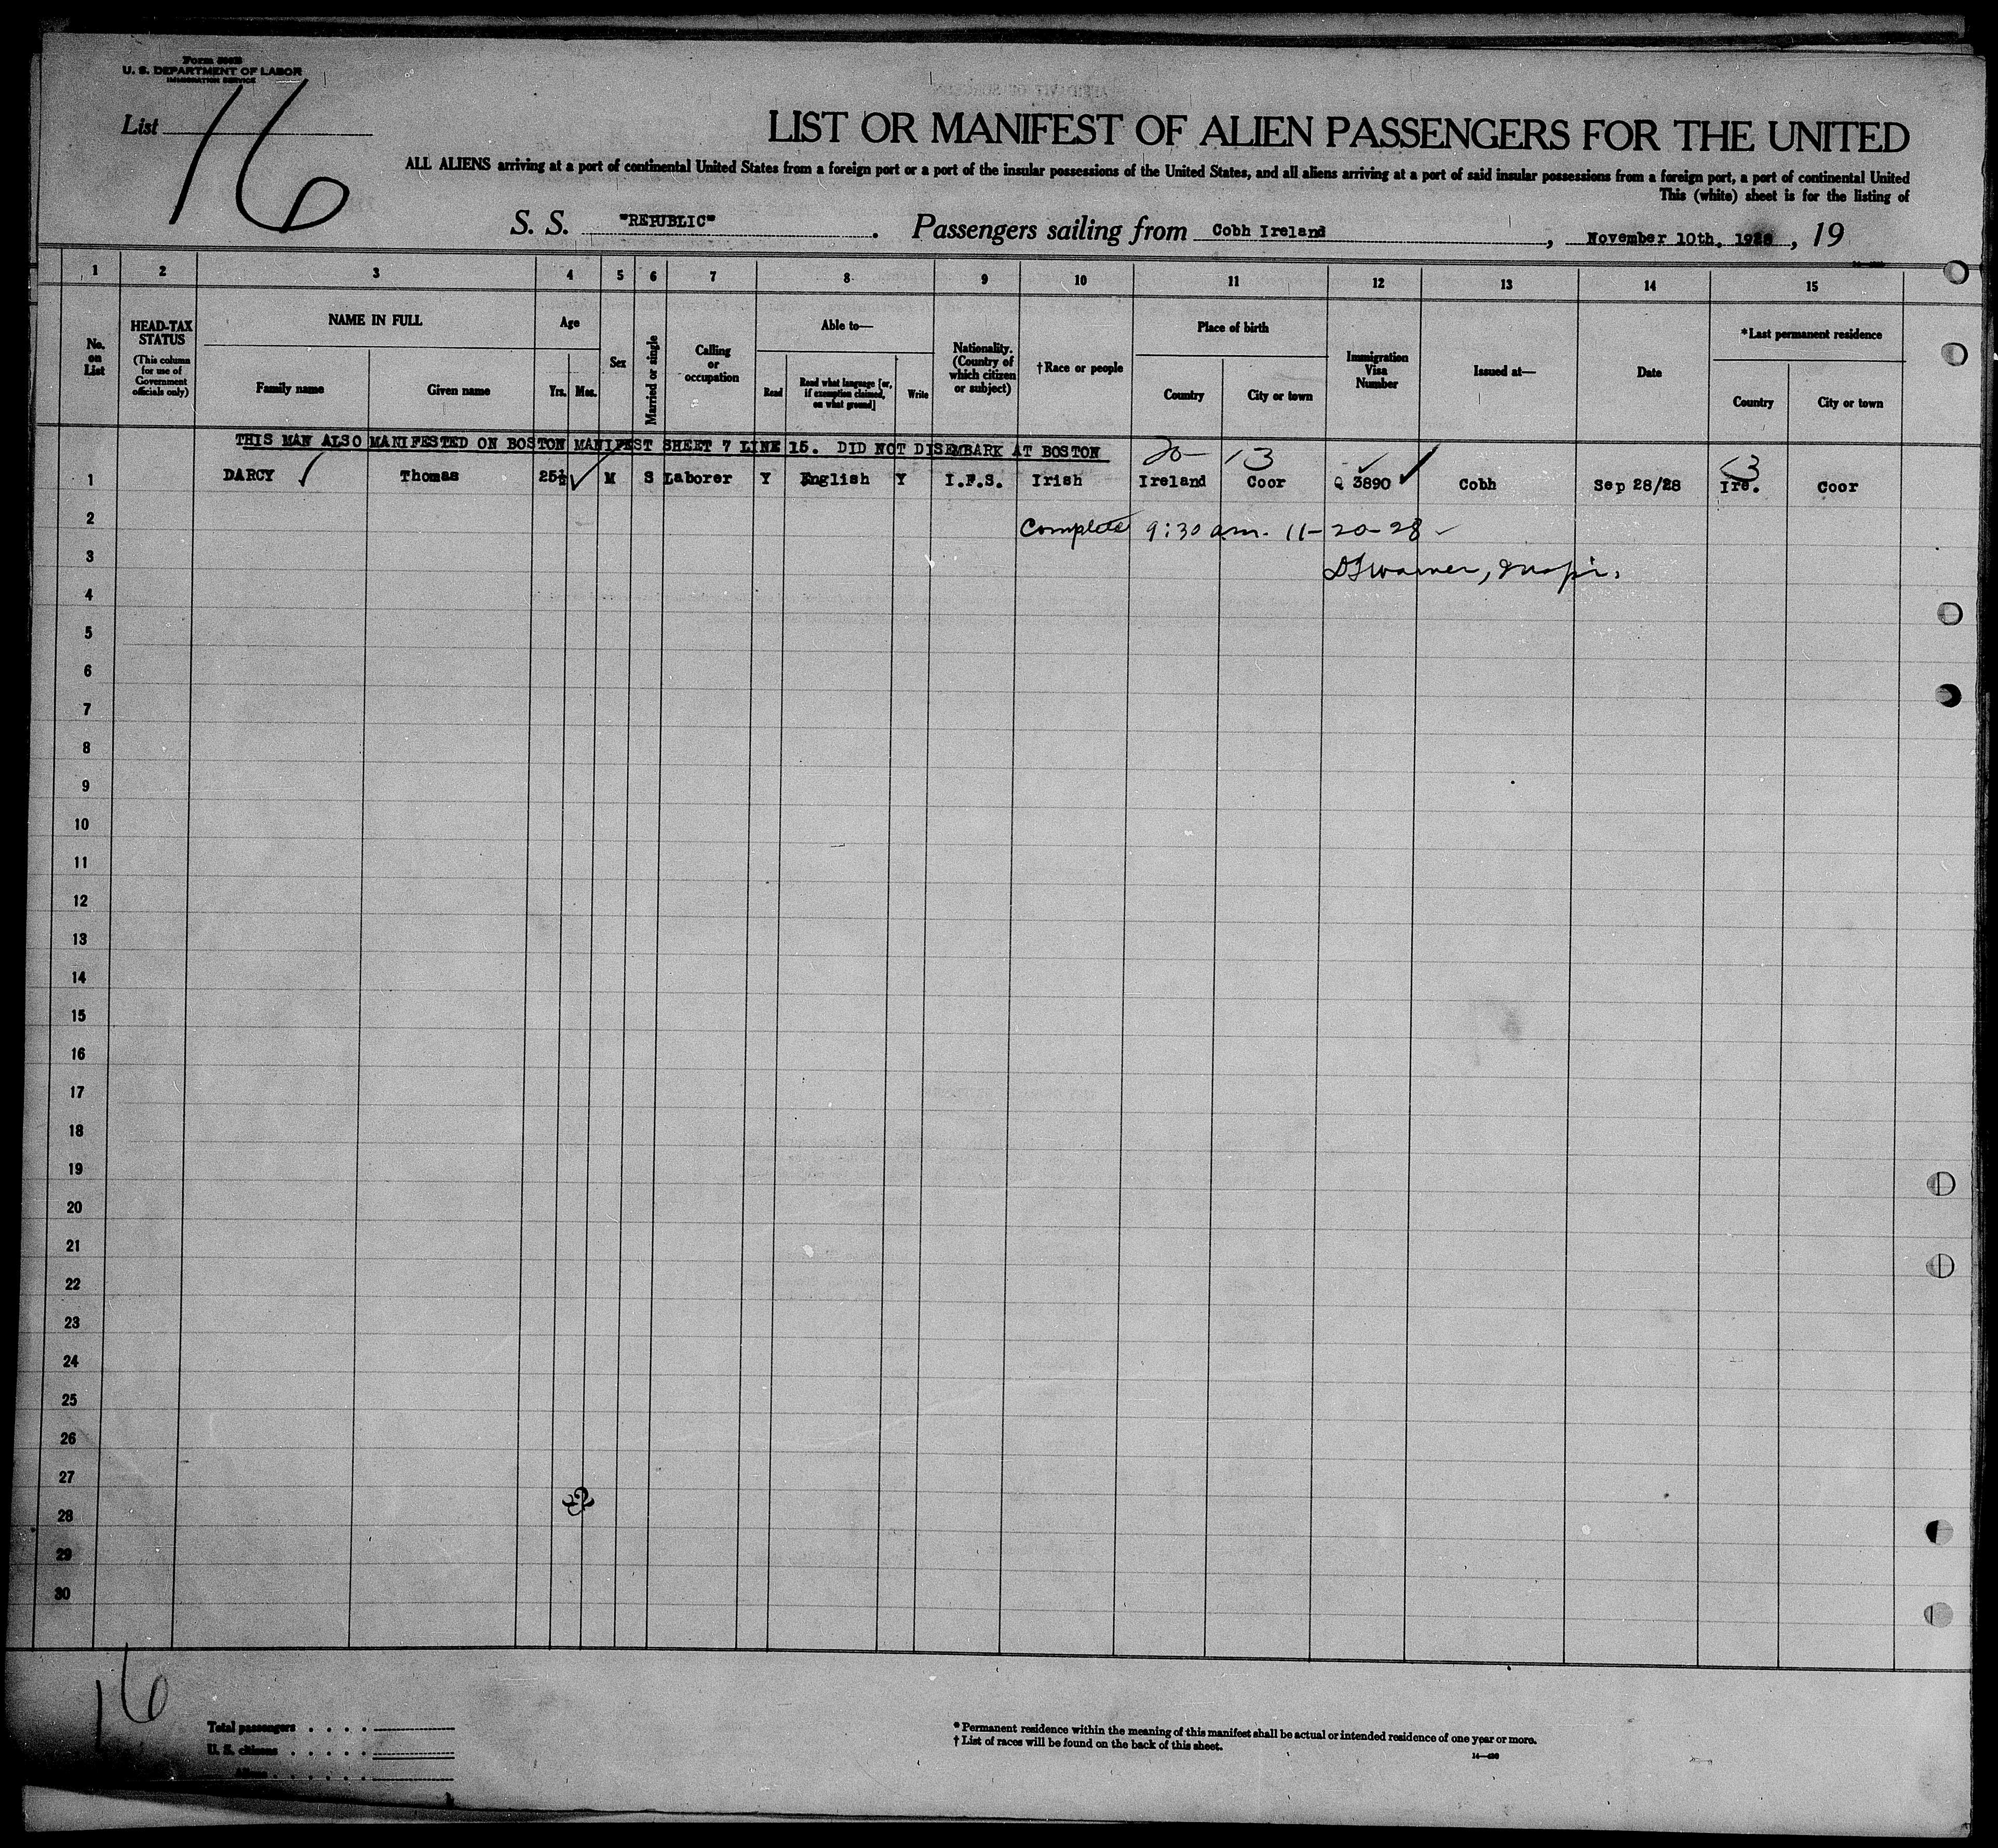 U. S. DEPARTMENT OF LABOR
IMMIGRATION SERVICE
List 16
LIST OR MANIFEST OF ALIEN PASSENGERS FOR THE UNITED
ALL ALIENS arriving at a port of continental United States from a foreign port or a port of the insular possessions of the United States, and all aliens arriving at a port of said insular possessions from a foreign port, a port of continental United
This (white) sheet is for the listing of
S. S. "REPUBLIC". Passengers sailing from Cobh Ireland, November 10th, 1928, 19
1 2 3 4 5 6 7 8 9 10 11 12 13 14 15
No. on List
HEAD-TAX STATUS (This column for use of Government officials only)
NAME IN FULL
Family name Given name
Age
Yrs. Mos.
Sex
Married or single
Calling or occupation
Able to—
Read Read what language [or, if exemption claimed, on what ground] Write
Nationality. (Country of which citizen or subject)
†Race or people
Place of birth
Country City or town
Immigration Visa Number
Issued at—
Date
*Last permanent residence
Country City or town
THIS MAN ALSO MANIFESTED ON BOSTON MANIFEST SHEET 7 LINE 15. DID NOT DISEMBARK AT BOSTON
20- 13 ✓ ✓ 13
1 DARCY ✓ Thomas 25½ ✓ M S Laborer Y English Y I.F.S. Irish Ireland Coor Q 3890 Cobh Sep 28/28 Ire. Coor
2 Complete 9:30 am. 11-20-28
3 Warner, Inspr.
4
5
6
7
8
9
10
11
12
13
14
15
16
17
18
19
20
21
22
23
24
25
26
27
28
29
30
16
Total passengers . . . .
U. S. citizens . . . . .
Aliens . . . . . .
* Permanent residence within the meaning of this manifest shall be actual or intended residence of one year or more.
† List of races will be found on the back of this sheet.